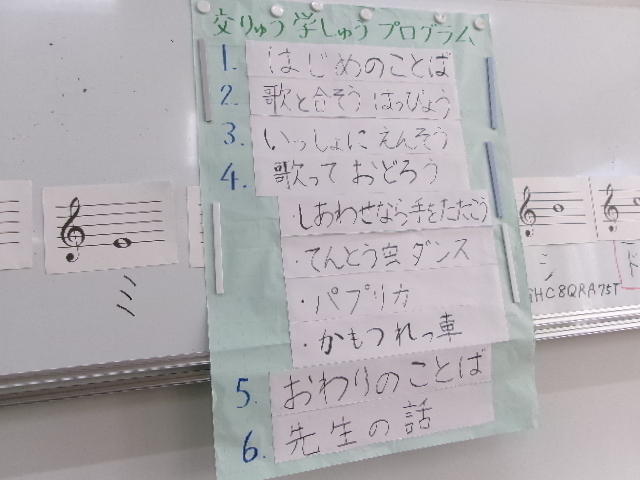 交りゅう学しゅうプログラム
1. はじめのことば
2. 歌と合そう はっぴょう
3. いっしょに えんそう
4. 歌って おどろう
・しあわせなら手をたたこう
・てんとう虫 ダンス
・パプリカ
・かもつれっ車
5. おわりのことば
6. 先生の話
ミ
ド